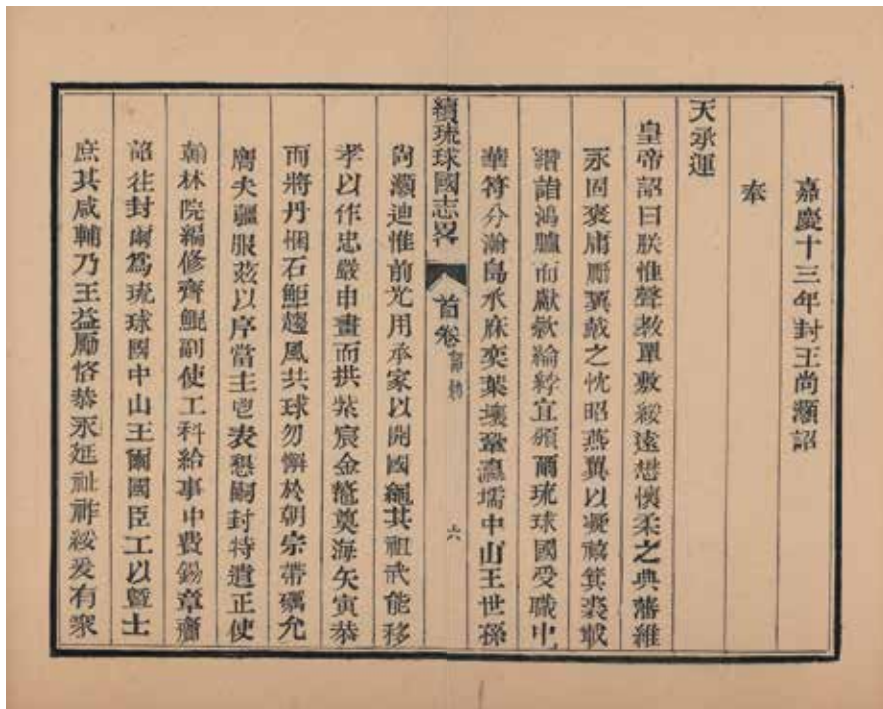 嘉慶十三年封王尚灝詔
奉
天承運
皇帝詔曰朕惟聲教覃敷綏遠懋懷柔之典藩維
永固褒庸厪翼戴之忱昭燕翼以凝禧箕裘載
纘詣鴻臚而獻欵綸綍宜頒爾琉球國受職中
華符分瀚島承庥奕葉壤鞏瀛壖中山王世孫
續琉球國志畧 首卷 詔勅 六
尚灝迪惟前光用承家以開國繩其祖武能移
孝以作忠嚴申畫而拱紫宸金鼇奠海矢寅恭
而將丹悃石鮔趨風共球勿懈於朝宗帶礪允
膺夫疆服茲以序當主鬯表懇嗣封特遣正使
翰林院編修齊鯤副使工科給事中費錫章齎
詔往封爾爲琉球國中山王爾國臣工以暨士
庶其咸輔乃王益勵恪恭永延祉祚綏爰有衆